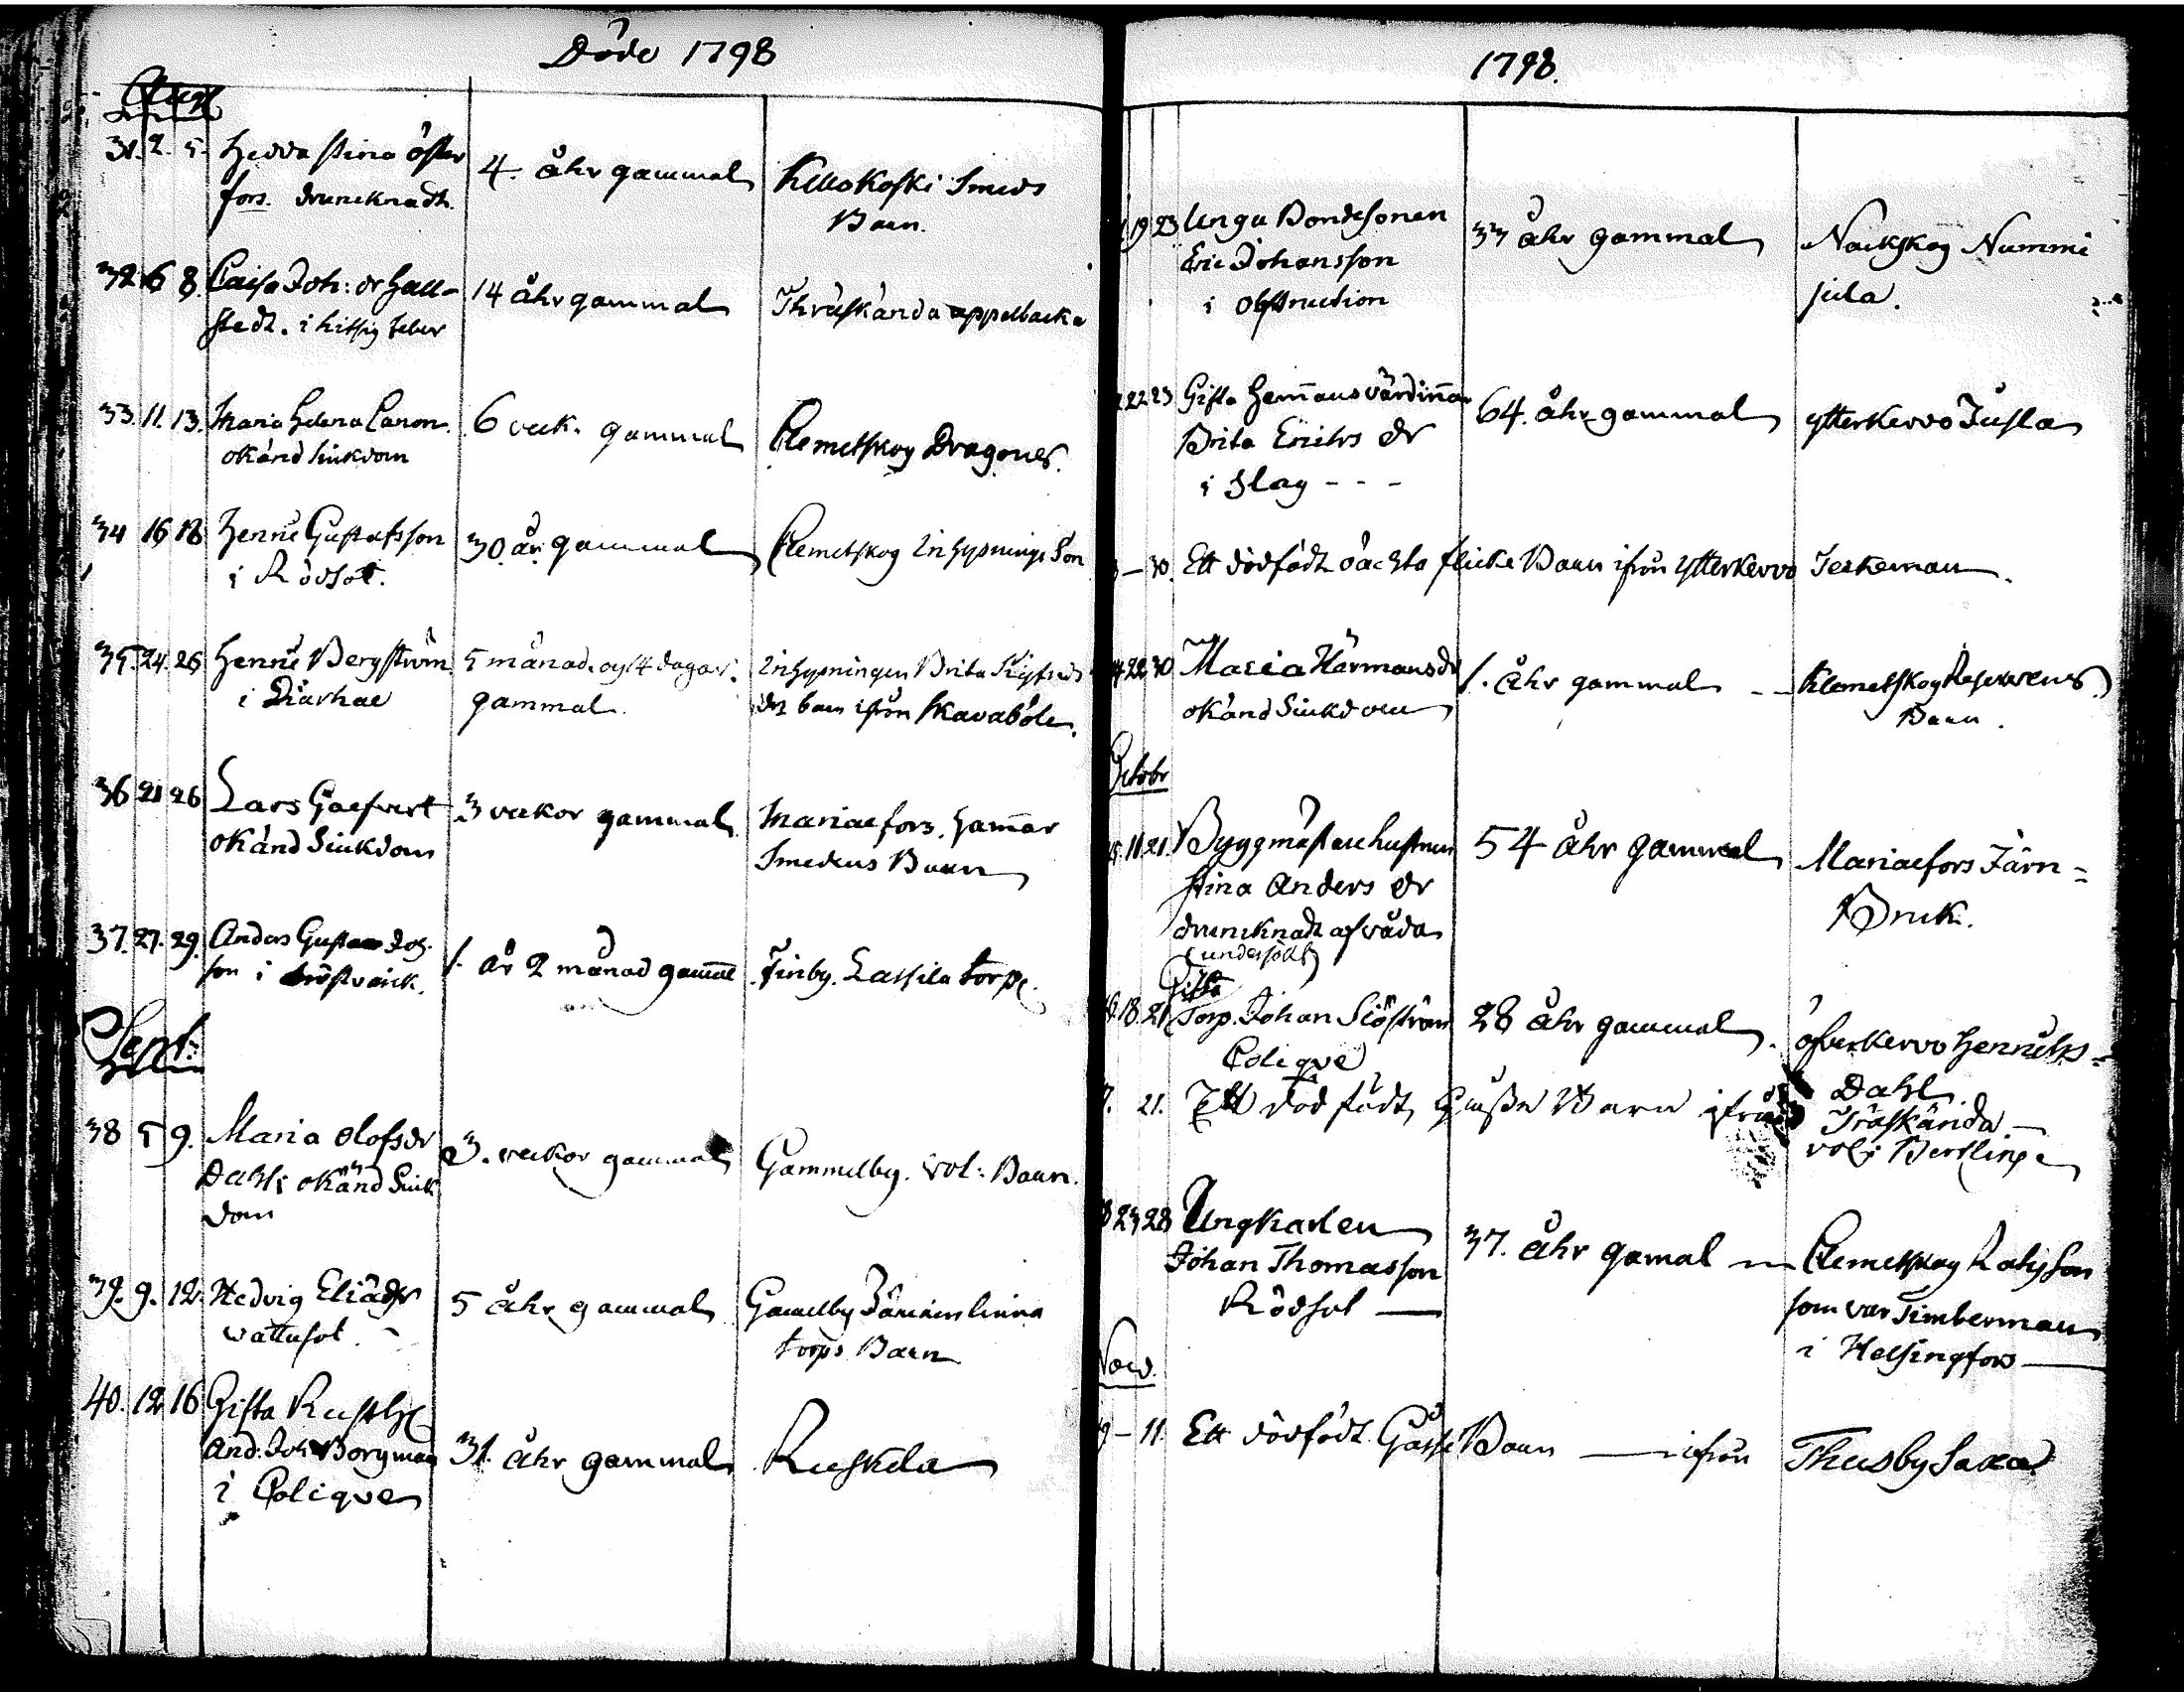 Döde 1798
Aug.
31. 2. 5. Hedda Stina Öster
fors. drunknadt.
4. åhr gammal
Kellokoski Smeds
Barn.
32. 6 8. Caisa Joh: dr Hall-
stedt. i hitsig feber
14 åhr gammal
Thräskända appelbacka
33. 11. 13. Maria Helena Canon.
okänd siukdom
6 veck. gammal
Clemetskog Dragones.
34 16 18 Henric Gustafsson
i Rödsot.
30. år. gammal
Clemetskog Inhysnings Son
35. 24. 26 Henric Bergström
i Diarhae
5 månad. og 4 dagar.
gammal.
Inhysningen Brita Sigfreds
dr barn ifrån Skavaböle.
36 21 26 Lars Graefvert
okänd Siukdom
3 veckor gammal.
Mariaefors. Ham̄ar
Smedens Barn
37. 27. 29. Anders Gustav Joh.
son i bröstvärck.
1. år 2 månad gam̄al
Finby. Lassila torp.
Sept:
38 5 9. Maria Olofsdr
Dahl; okänd Siuk
dom
3. veckor gammal
Gammelby. vol: Barn.
39. 9. 12. Hedvig Eliædr
vattusot.
5 åhr gammal
Gamelby Jänickenlinna
torps Barn
40. 12 16 Gifta Rusth.
And. Joh. Borgman
i Colique
31. åhr gammal
Ruskela
1798.
19 23 Unga Bondesonen
Eric Johansson
i Obstruction
33 åhr gammal
Nackskog Nummi
jula.
22 23 Gifta Hem̄ansvärdin̄an
Brita Erichs dr
i Slag - - -
64. åhr gammal
ytterkervo Jusla
- 30. Ett dödfödt oächta flicke Barn ifrån ytterkervo Jeskeman.
22 30 Maria Hermansdr
okänd Siukdom
1. åhr gammal - -
Klemetskog Reservens
Barn.
Octobr
11 21. Byggmästarehustrun
Stina Anders dr
drunknadt af våda
(undersökt)
54 åhr gammal
Mariaefors Järn =
Bruk.
Gifta
18. 21 Torp. Johan Siöström
Colique
28 åhr gammal.
öfverkervo Henricks =
Dahl.
21. Ett död födt, Gosse Barn ifrån
Träskända -
vol: Bertlings
23 28 Ungkarlen
Johan Thomasson
Rödsot -
37. åhr gamal
Clemetskog Rahis Son
som var Timberman
i Helsingfors
Nov.
- 11. Ett dödfödt. Gåsse Barn - ifrån Thusby Saxa